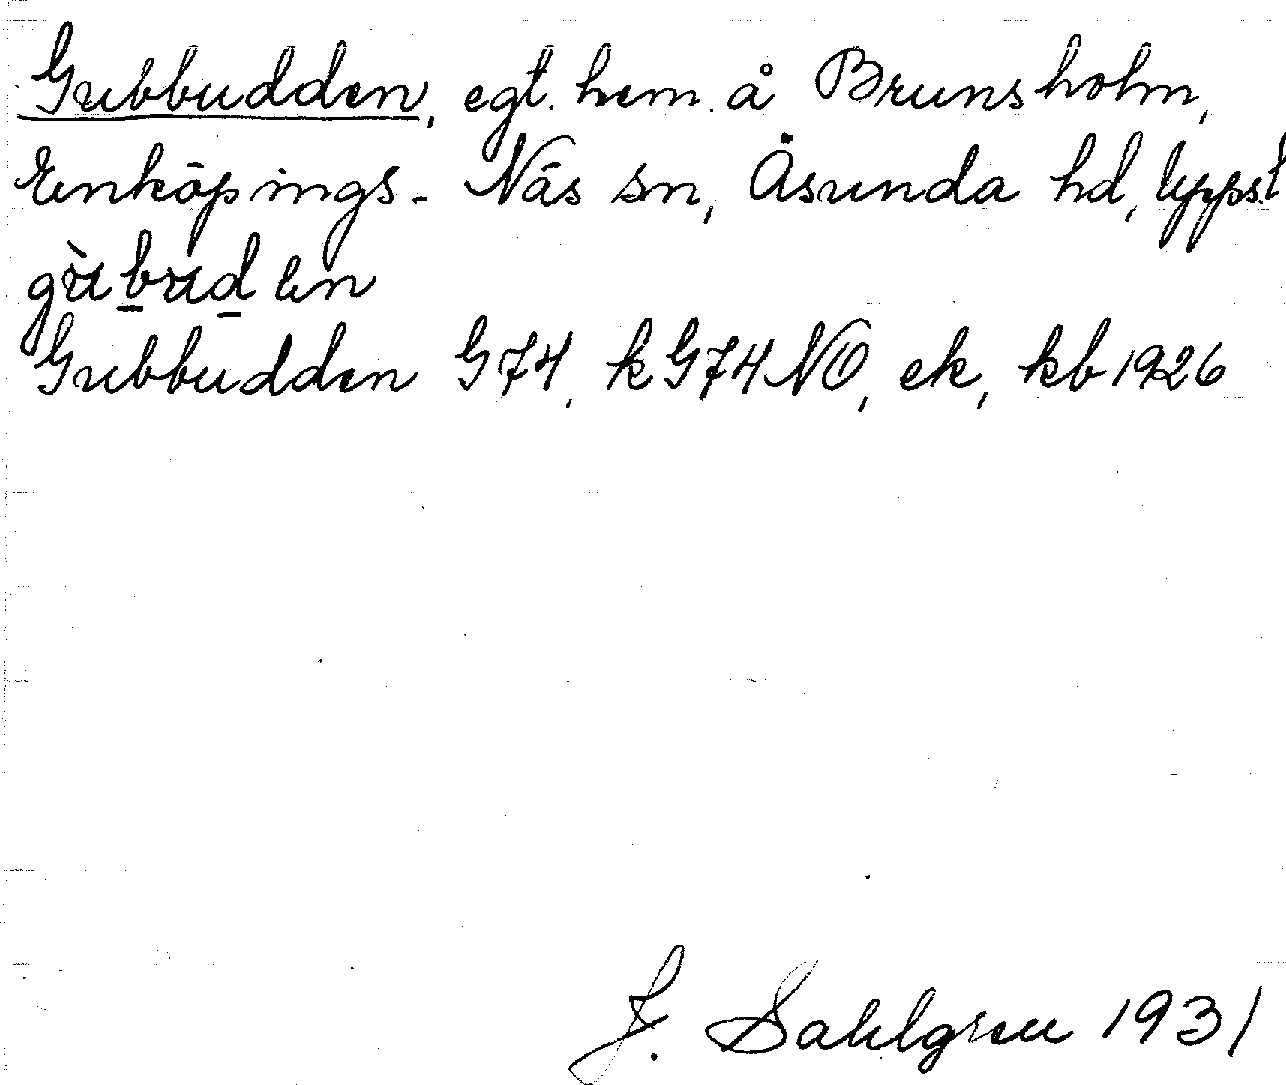 Gubbudden, egt. hem. å Brunsholm,
Enköpings-Näs sn, Åsunda hd, Uppsl
gùbuden
Gubbudden G74, k G74NO, ek, kb 1926
J. Sahlgren 1931